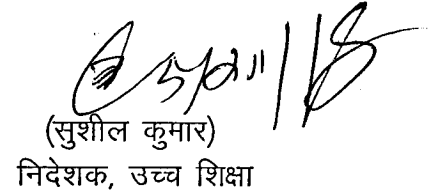 (सुशील कुमार)
निदेशक, उच्च शिक्षा